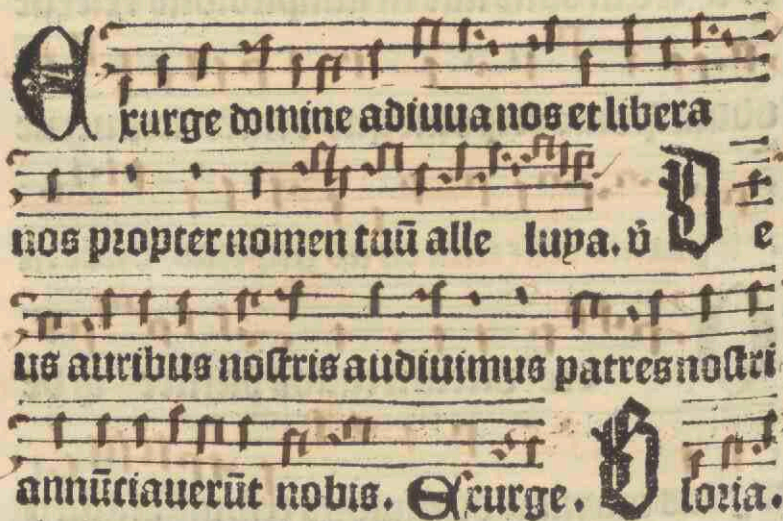 Exurge domine adiuua nos et libera
nos propter nomen tuū alle luya. v̄ De
us auribus nostris audiuimus patres nostri
annūciauerūt nobis. Exurge. Gloria.